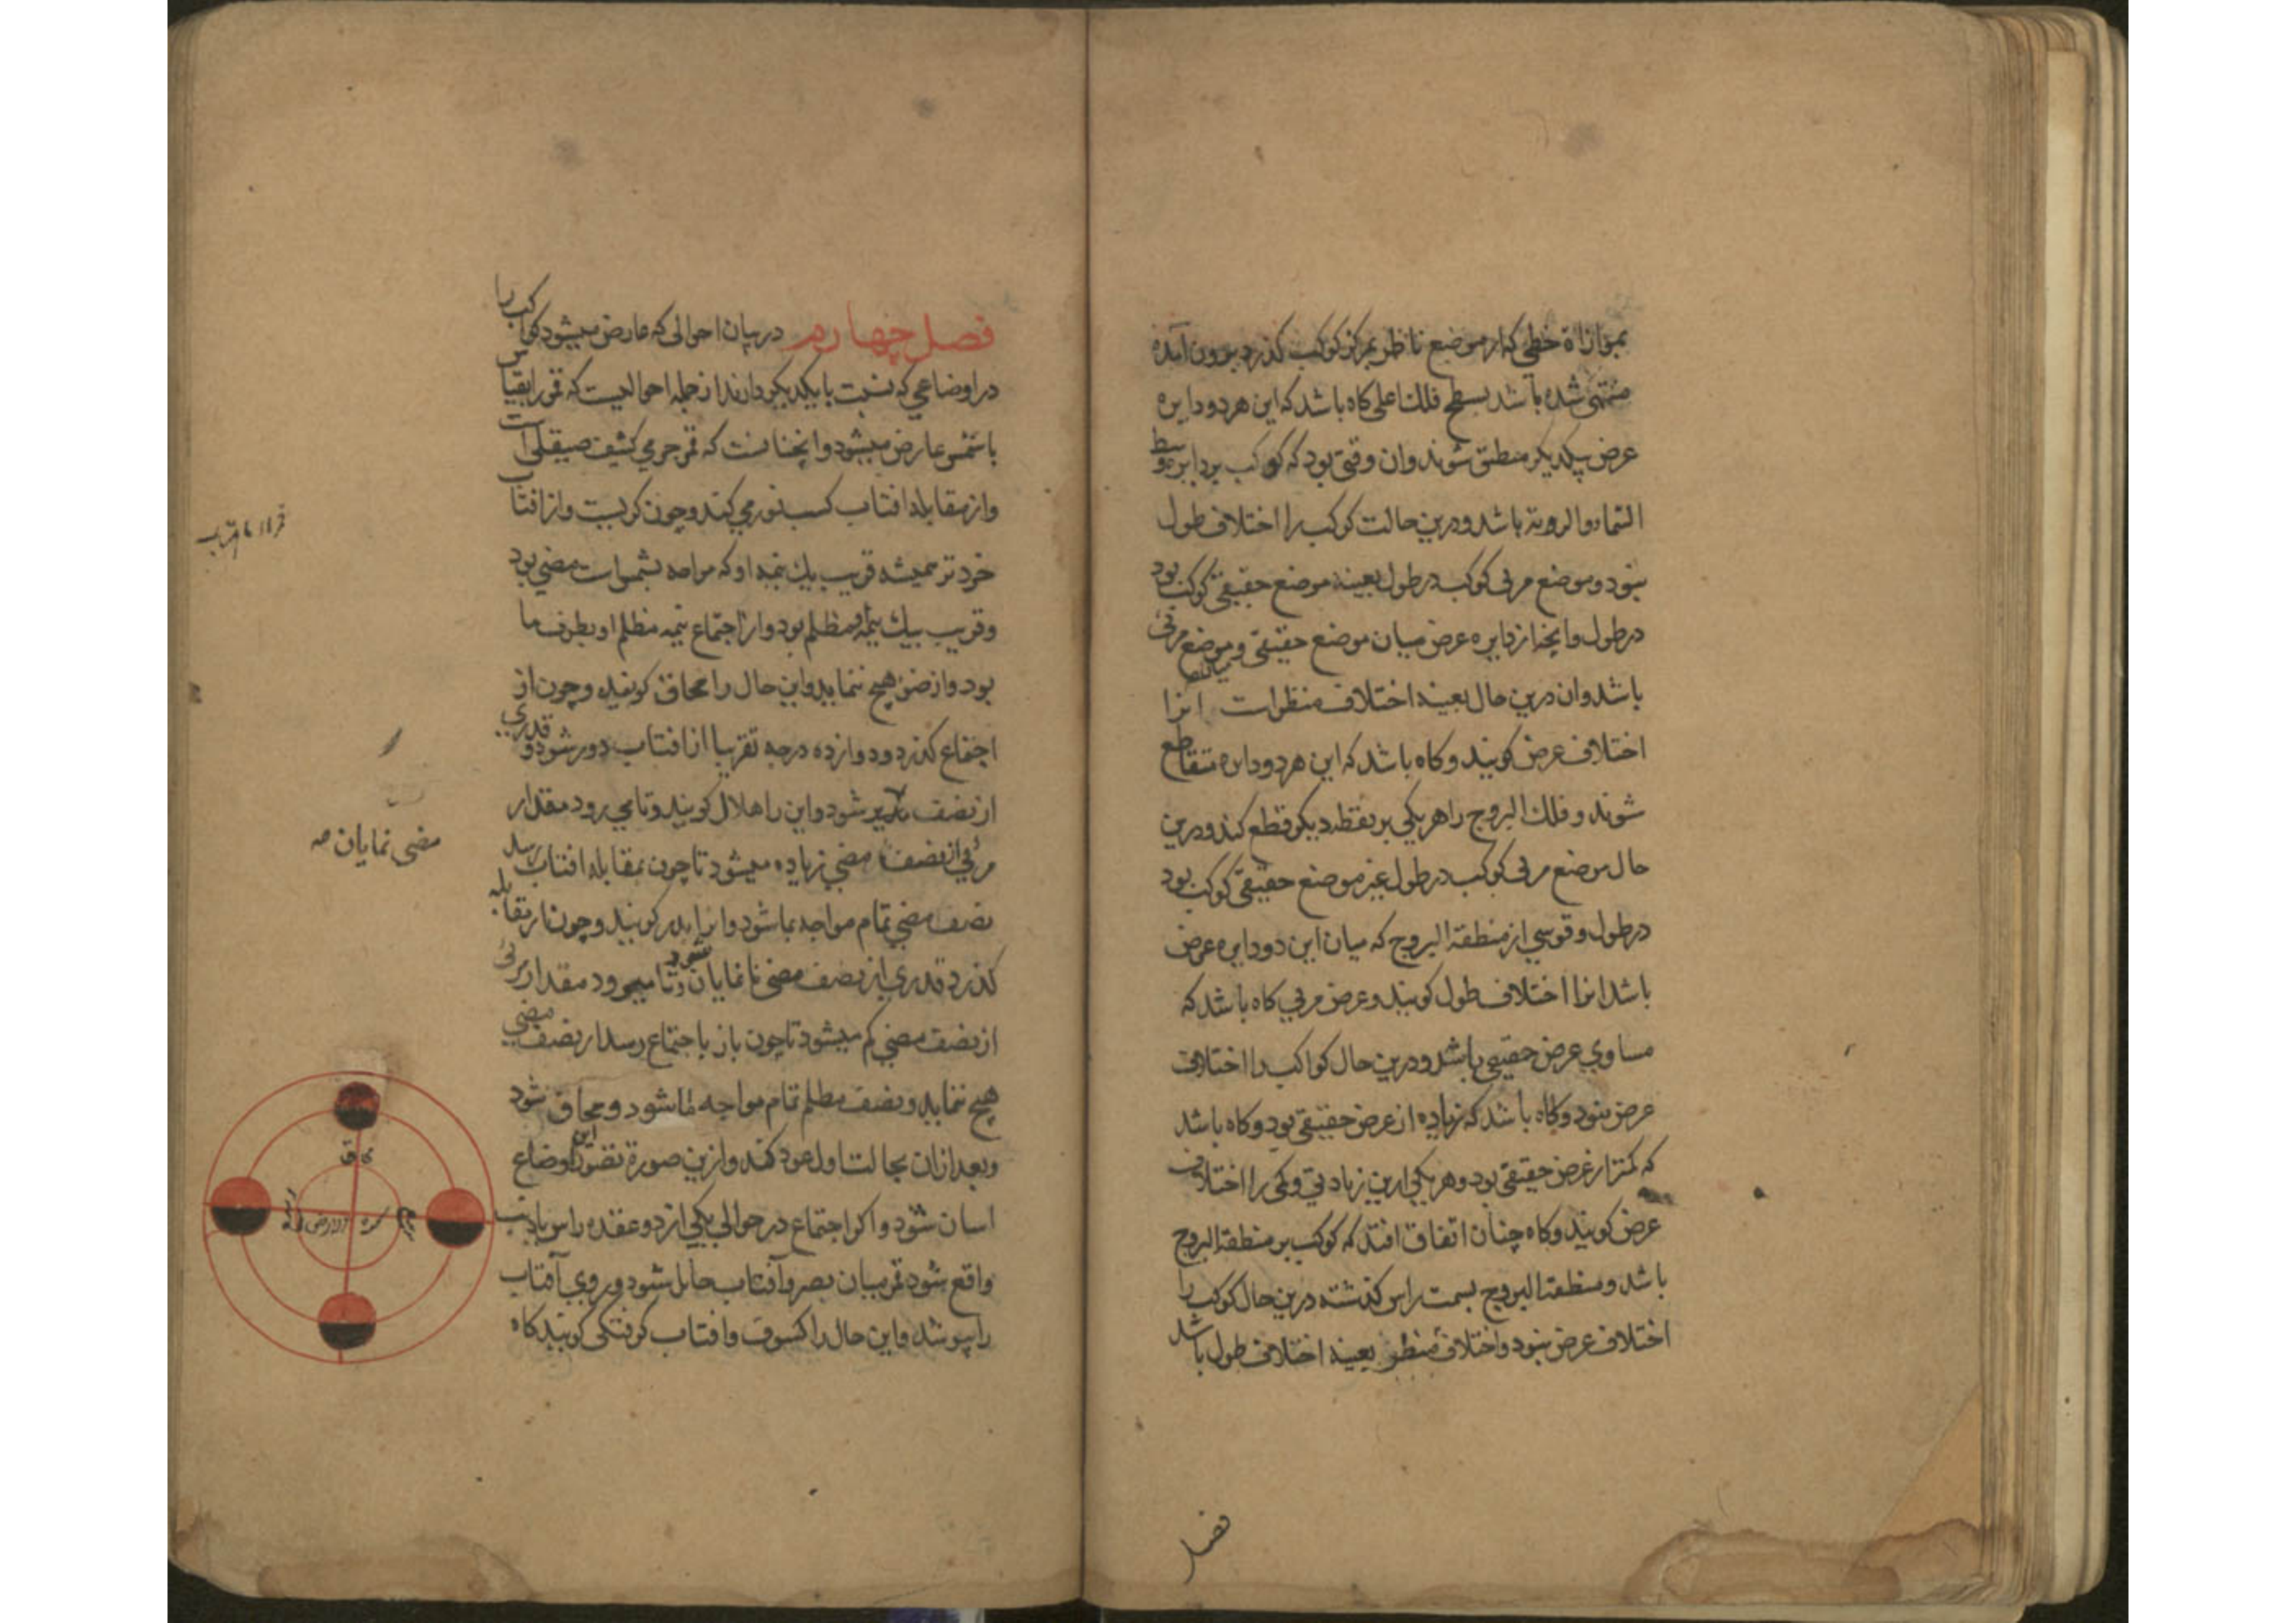 بموازاة خطی که از موضع ناظر بمرکز کوکب کذرد بیرون آمده
منتهی شده باشد بسطح فلک اعلی کاه باشد که این هر دو دایره
عرض بیکدیکر منطبق شوند وان وقتی بود که کوکب بر دایره وسط
السماء الرویة باشد و درین حالت کوکب را اختلاف طول
نبود و موضع مرئی کوکب در طول بعینه موضع حقیقی کوکب بود
در طول وانچه از دایره عرض میان موضع حقیقی و موضع مرئی
باشد وان درین حال بعینه اختلاف منظر است انرا
اختلاف عرض کویند و کاه باشد که این هر دو دایره متقاطع
شوند و فلک البروج را هر یکی بر نقطه دیکر قطع کند و درین
حال موضع مرئی کوکب در طول غیر موضع حقیقی کوکب بود
در طول و قوسی از منطقة البروج که میان این دو دایره عرض
باشد انرا اختلاف طول کویند و عرض مرئی کاه باشد که
مساوی عرض حقیقی باشد و درین حال کواکب را اختلاف
عرض نبود و کاه باشد که زیاده از عرض حقیقی بود و کاه باشد
که کمتر از عرض حقیقی بود و هر یکی ازین زیادتی و کمی را اختلاف
عرض کویند و کاه چنان اتفاق افتد که کوکب بر منطقة البروج
باشد و منطقة البروج بسمت راس کذشته درین حال کوکب را
اختلاف عرض نبود و اختلاف منظر بعینه اختلاف طول باشد
فصل
فصل چهارم در بیان احوالی که عارض میشود کواکب را
در اوضاعی که نسبت با یکدیکر دارند از جمله احوالیست که قمر را بقیاس
با شمس عارض میشود وانچنانست که قمر جرمی کثیف صیقلی است
واز مقابله افتاب کسب نور می کند و چون کریست و از افتاب
خردتر همیشه قریب بیک نیمه او که مواجه شمس است مضی بود
و قریب بیک نیمه مظلم بود و از اجتماع نیمه مظلم او بطرف ما
بود و از ضوء هیچ ننماید و این حال را محاق کویند و چون از
اجتماع کذرد و دوازده درجه تقریبا از افتاب دور شود قدری
از نصف شود و این را هلال کویند و تا می رود مقدار
مرئی از نصف مضی زیاده میشود تا چون بمقابله افتاب رسد
نصف مضی تمام مواجه ما شود وانرا بدر کویند و چون از مقابله
کذرد قدری از نصف مضی نا نمایان شود و تا میرود مقدار مرئی
از نصف مضی کم میشود تا چون باز باجتماع رسد از نصف مضی
هیچ ننماید و نصف مظلم تمام مواجه ما شود و محاق شود
و بعد ازان بحالت اول عود کند و ازین صورة تصور این اوضاع
اسان شود و اکر اجتماع در حوالی یکی از دو عقده راس یا ذنب
واقع شود قمر میان بصر و آفتاب حائل شود و روی آفتاب
را بپوشد و این حال را کسوف و افتاب کرفتکی کویند کاه
مضی نمایان صه
محاق